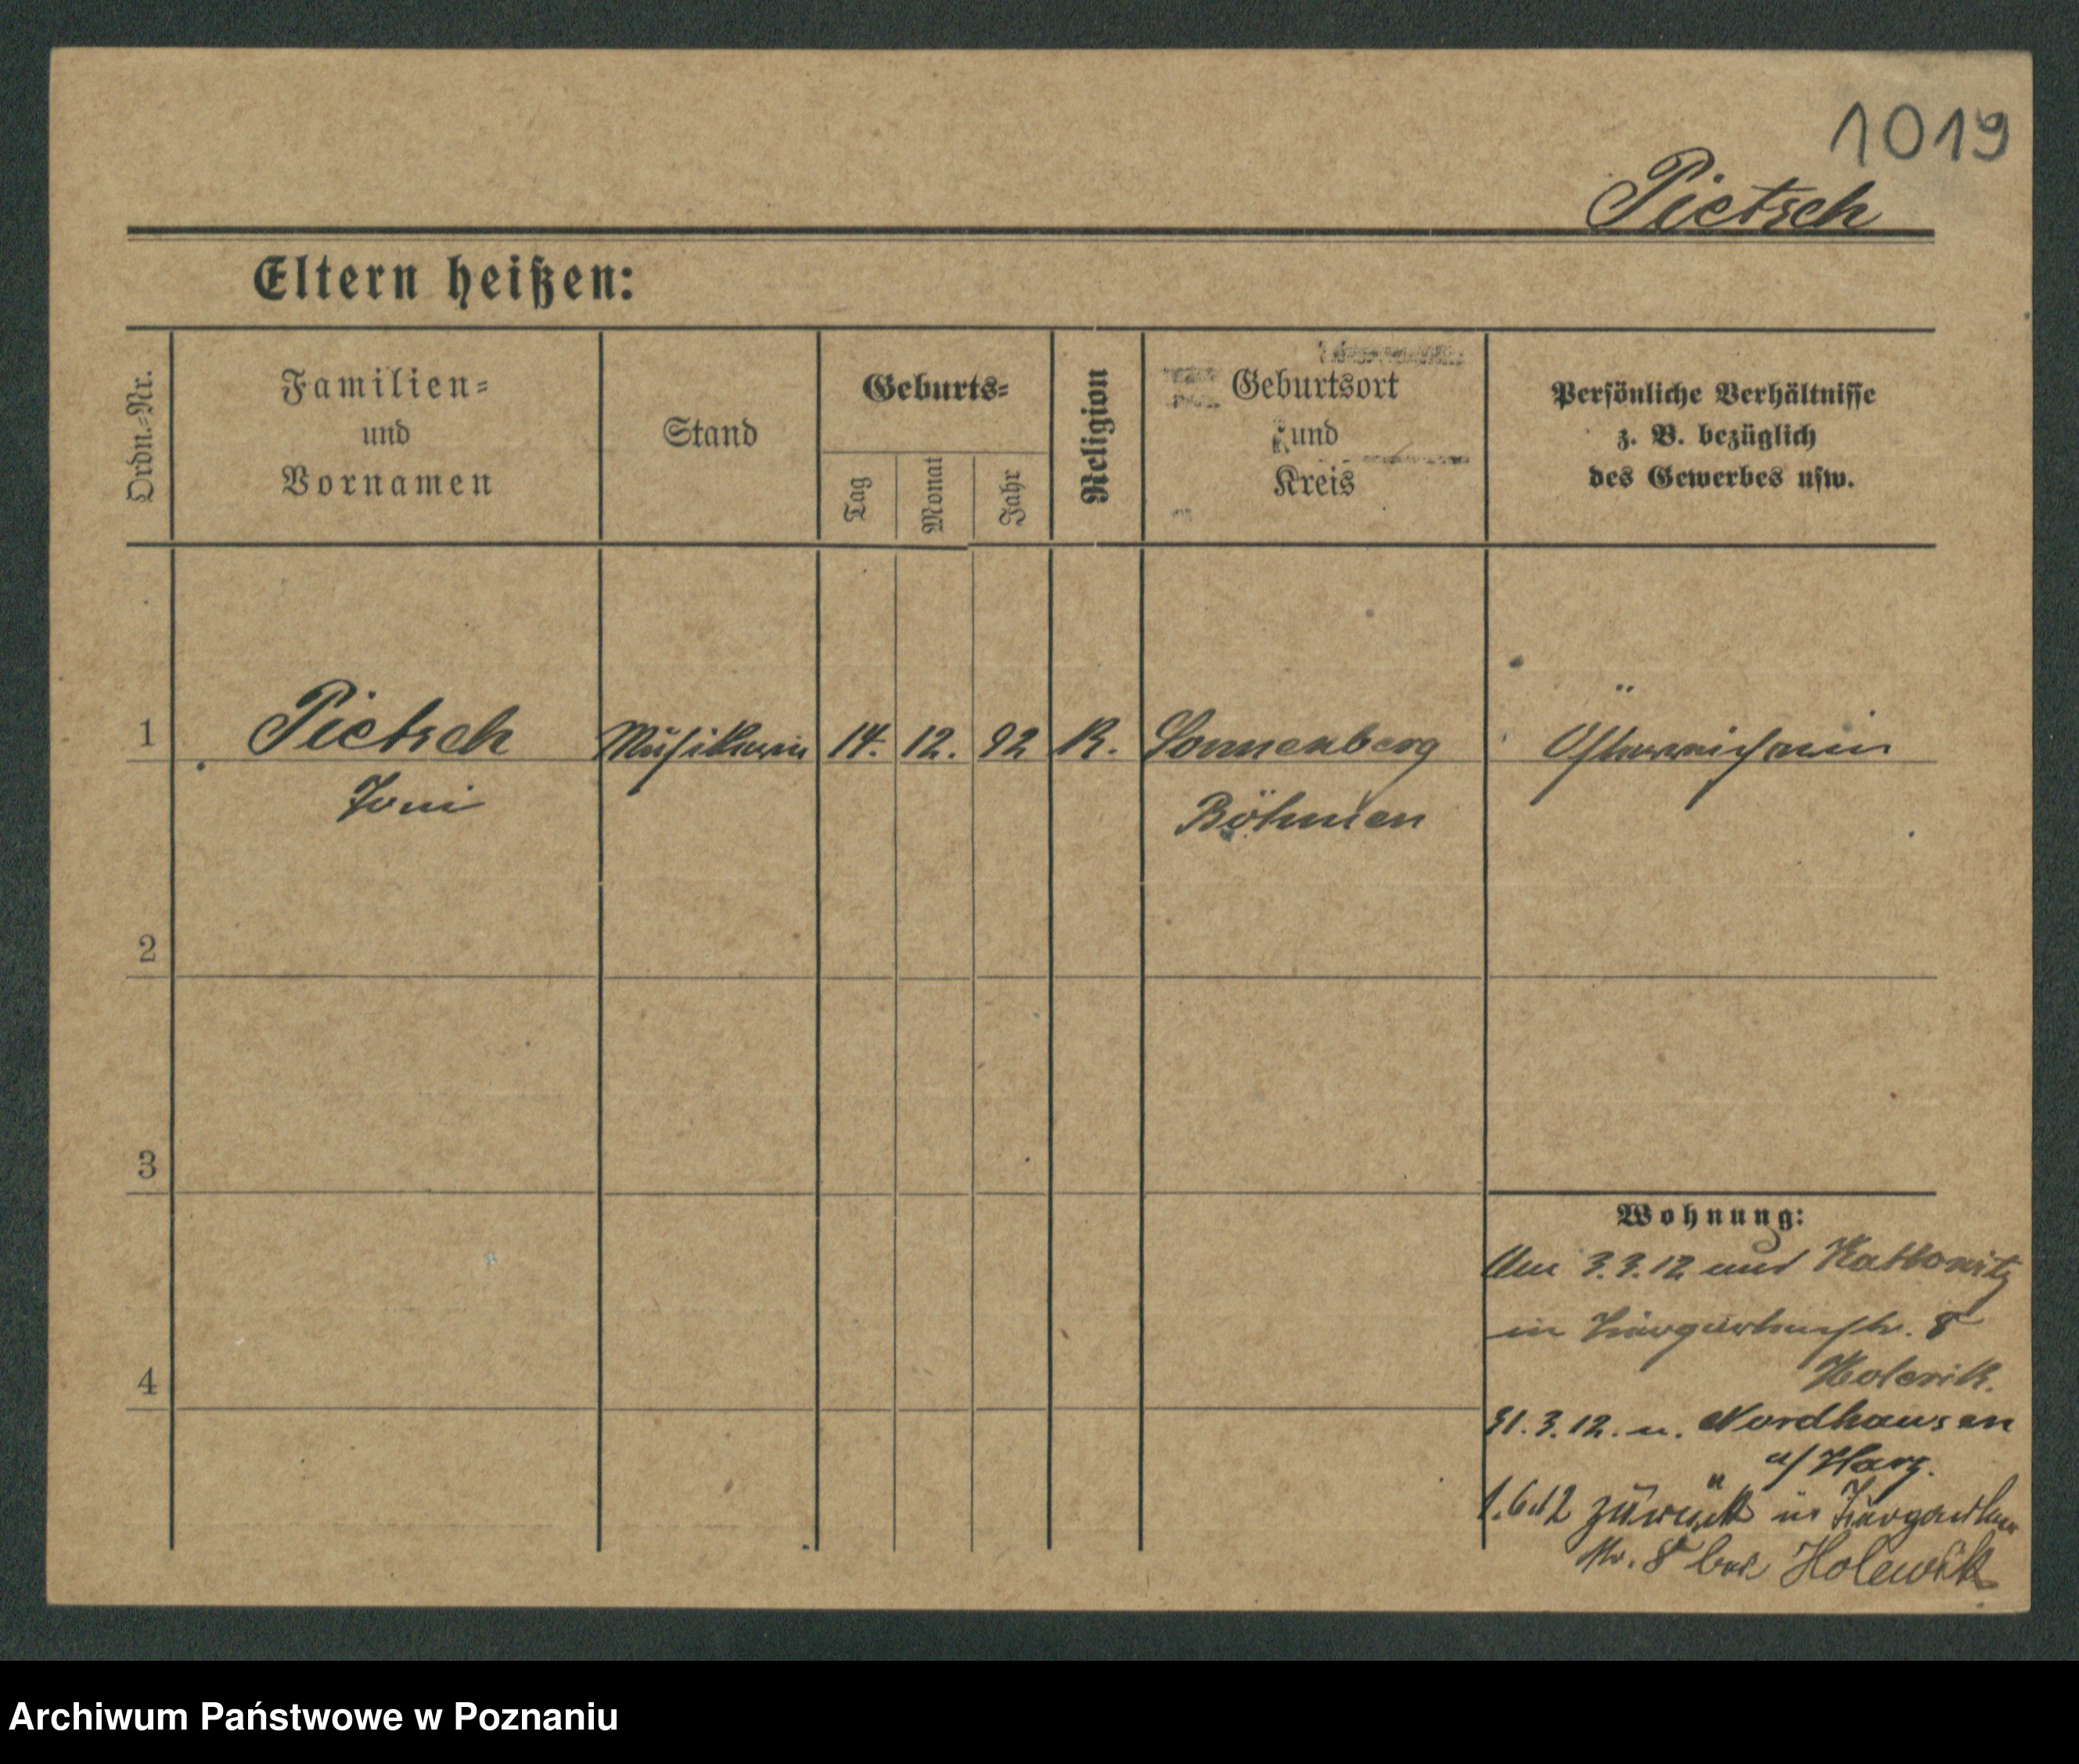 1019
Pietsch
Eltern heißen:
Ordn.-Nr.
Familien-
und
Vornamen
Stand
Geburts-
Tag
Monat
Jahr
Religion
Geburtsort
und
Kreis
Persönliche Verhältnisse
z. B. bezüglich
des Gewerbes usw.
1 Pietsch Musikerin 14. 12. 92 K. Sonnenberg Österreicherin
Toni Böhmen
2
3
4
Wohnung:
Am 3.3.12 aus Kattowitz
in Tiergartenstr. 8
Holewik.
31.3.12. n. Nordhausen
a/Harz.
1.6.12 zurück in Tiergarten
str. 8 bei Holewik
Archiwum Państwowe w Poznaniu